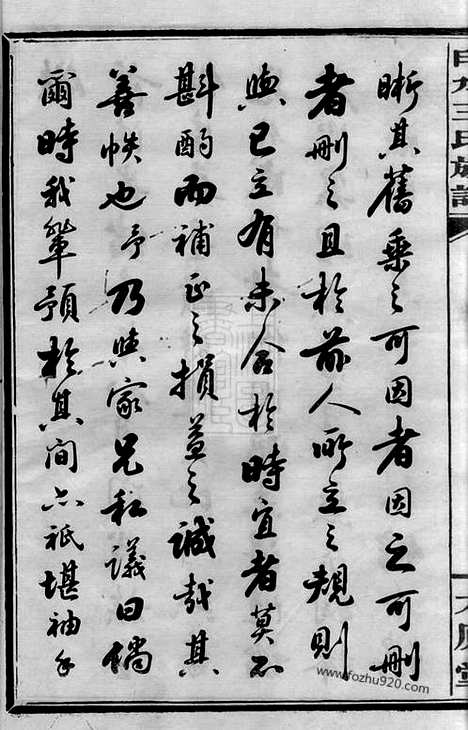 晰其舊乘之可因者因之可刪
者刪之且於前人所立之規則
與已立有未合於時宜者莫不
斟酌而補正之損益之誠哉其
善帙也予乃與家兄私議曰倘
爾時我輩預於其間亦祇堪袖手
王氏族譜
www.fozhu920.com